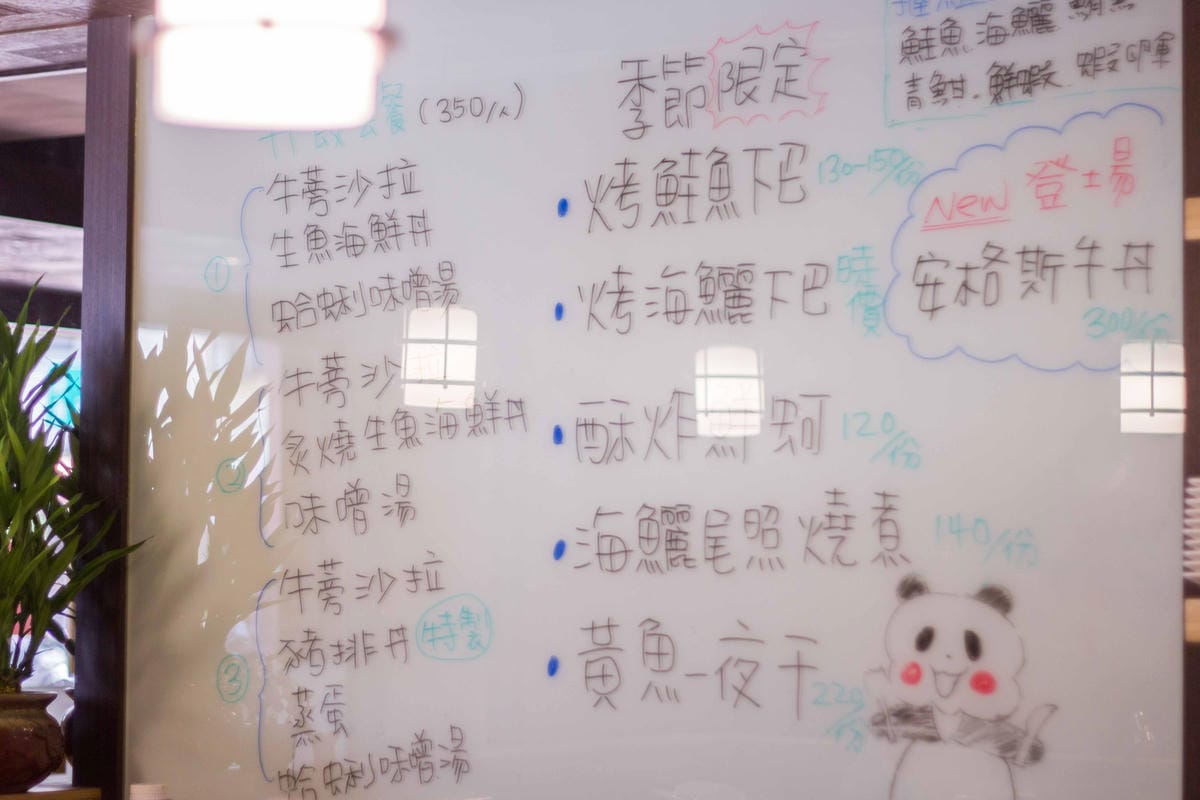 餐 (350/人)
①
牛蒡沙拉
生魚海鮮丼
蛤蜊味噌湯
②
牛蒡沙拉
炙燒生魚海鮮丼
味噌湯
③
牛蒡沙拉
豬排丼 特製
蒸蛋
蛤蜊味噌湯
季節限定
• 烤鮭魚下巴 130-150/份
• 烤海鱺下巴 時價
• 酥炸鮮蚵 120/份
• 海鱺尾照燒煮 140/份
• 黃魚一夜干 220/份
鮭魚.海鱺.
青魽.鮮蝦.蝦卵軍
New 登場
安格斯牛丼
300/份